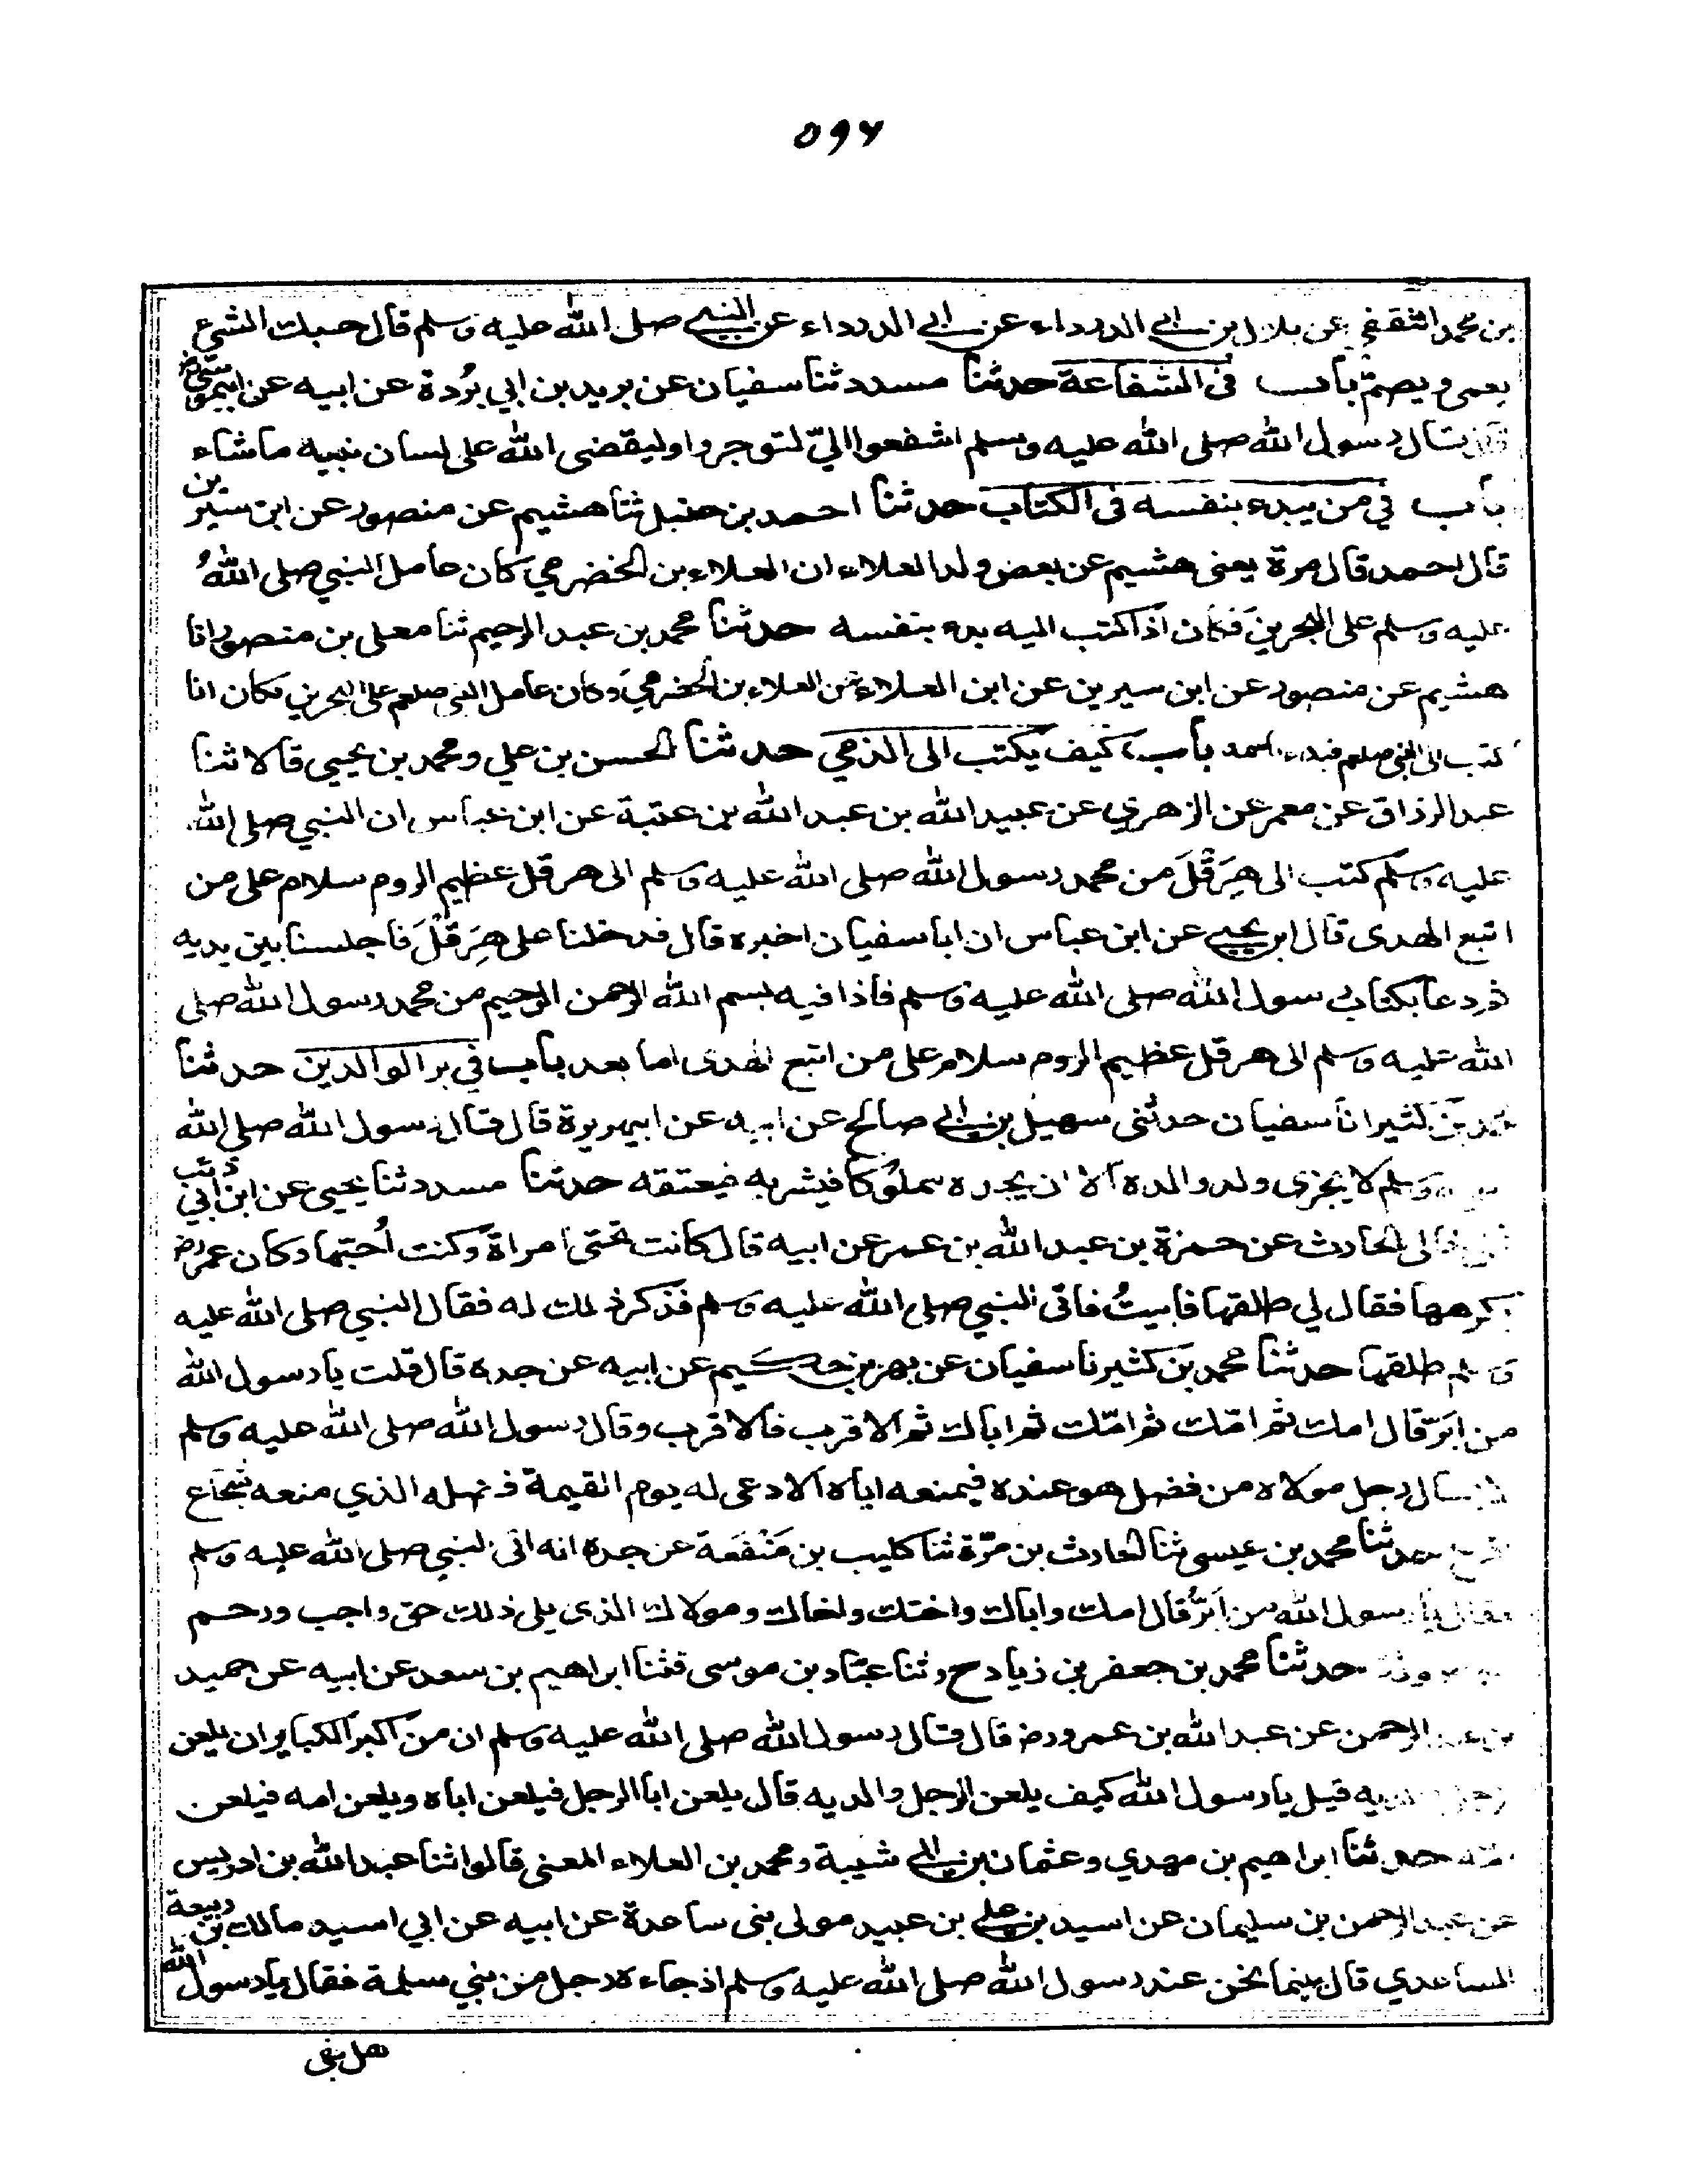 ٥٩٧
بن محمد الثقفي عن بلال بن ابي الدرداء عن ابي الدرداء عن النبي صلى الله عليه وسلم قال حبك الشئ
يعمي ويصمّ باب في الشفاعة حدثنا مسدد ثنا سفيان عن بريد بن ابي بُردة عن ابيه عن ابي موسى رض
قال رسول الله صلى الله عليه وسلم اشفعوا اليّ لتوجروا وليقضى الله على لسان نبيه ما شاء
باب في من يبدء بنفسه في الكتاب حدثنا احمد بن حنبل ثنا هشيم عن منصور عن ابن سيرين
قال احمد قال مرة يعنى هشيم عن بعض ولد العلاء ان العلاء بن الحضرمي كان عامل النبي صلى الله
عليه وسلم على البحرين فكان اذا كتب اليه بدء بنفسه حدثنا محمد بن عبد الرحيم ثنا معلى بن منصور انا
هشيم عن منصور عن ابن سيرين عن ابن العلاء عن العلاء بن الحضرمي وكان عامل النبي صلعم على البحرين فكان اذا
كتب الى النبي صلعم فبدء باسمه باب كيف يكتب الى الذمي حدثنا الحسن بن علي ومحمد بن يحيى قالا ثنا
عبد الرزاق عن معمر عن الزهري عن عبيد الله بن عبد الله بن عتبة عن ابن عباس ان النبي صلى الله
عليه وسلم كتب الى هِرَقْلَ من محمد رسول الله صلى الله عليه وسلم الى هرقل عظيم الروم سلام على من
اتبع الهدى قال ابن يحيى عن ابن عباس ان ابا سفيان اخبره قال فدخلنا على هِرَقْلَ فاجلسنا بين يديه
ثم دعا بكتاب رسول الله صلى الله عليه وسلم فاذا فيه بسم الله الرحمن الرحيم من محمد رسول الله صلى
الله عليه وسلم الى هرقل عظيم الروم سلام على من اتبع الهدى اما بعد باب في بر الوالدين حدثنا
محمد بن كثير انا سفيان حدثنى سهيل بن ابي صالح عن ابيه عن ابي هريرة قال قال رسول الله صلى الله
وسلم لا يجزى ولد والده الا ان يجده مملوكا فيشريه فيعتقه حدثنا مسدد ثنا يحيى عن ابن ابي ذئب
خالى الحارث عن حمزة بن عبد الله بن عمر عن ابيه قال كانت تحتى امراة وكنت اُحبّها وكان عمر رض
يكرهها فقال لي طلقها فابيتُ فاتى النبي صلى الله عليه وسلم فذكر ذلك له فقال النبي صلى الله عليه
وسلم طلقها حدثنا محمد بن كثير نا سفيان عن بهز بن حكيم عن ابيه عن جده قال قلت يا رسول الله
من ابرّ قال امك ثم امّك ثم امّك ثم اباك ثم الاقرب فالاقرب وقال رسول الله صلى الله عليه وسلم
لا يسال رجل مولاه من فضل هو عنده فيمنعه اياه الا دعى له يوم القيمة فضله الذي منعه شجاع
اقرع حدثنا محمد بن عيسى ثنا الحارث بن مرّة ثنا كليب بن مَنْفَعَة عن جده انه اتى النبي صلى الله عليه وسلم
فقال يا رسول الله من اَبَرُّ قال امك واباك واختك واخاك ومولاك الذى يلى ذلك حق واجب ورحم
حدثنا محمد بن جعفر بن زياد ح وثنا عبّاد بن موسى قثنا ابراهيم بن سعد عن ابيه عن حميد
بن عبد الرحمن عن عبد الله بن عمرو رض قال قال رسول الله صلى الله عليه وسلم ان من اكبر الكبائر ان يلعن
الرجل والديه قيل يا رسول الله كيف يلعن الرجل والديه قال يلعن ابا الرجل فيلعن اباه ويلعن امه فيلعن
امه حدثنا ابراهيم بن مهدي وعثمان بن ابي شيبة ومحمد بن العلاء المعنى قالوا ثنا عبد الله بن ادريس
عن عبد الرحمن بن سليمان عن اسيد بن علي بن عبيد مولى بنى ساعدة عن ابيه عن ابي اسيد مالك بن ربيعة
الساعدي قال بينما نحن عند رسول الله صلى الله عليه وسلم اذ جاءه رجل من بني سلمة فقال يا رسول الله
هل بقى